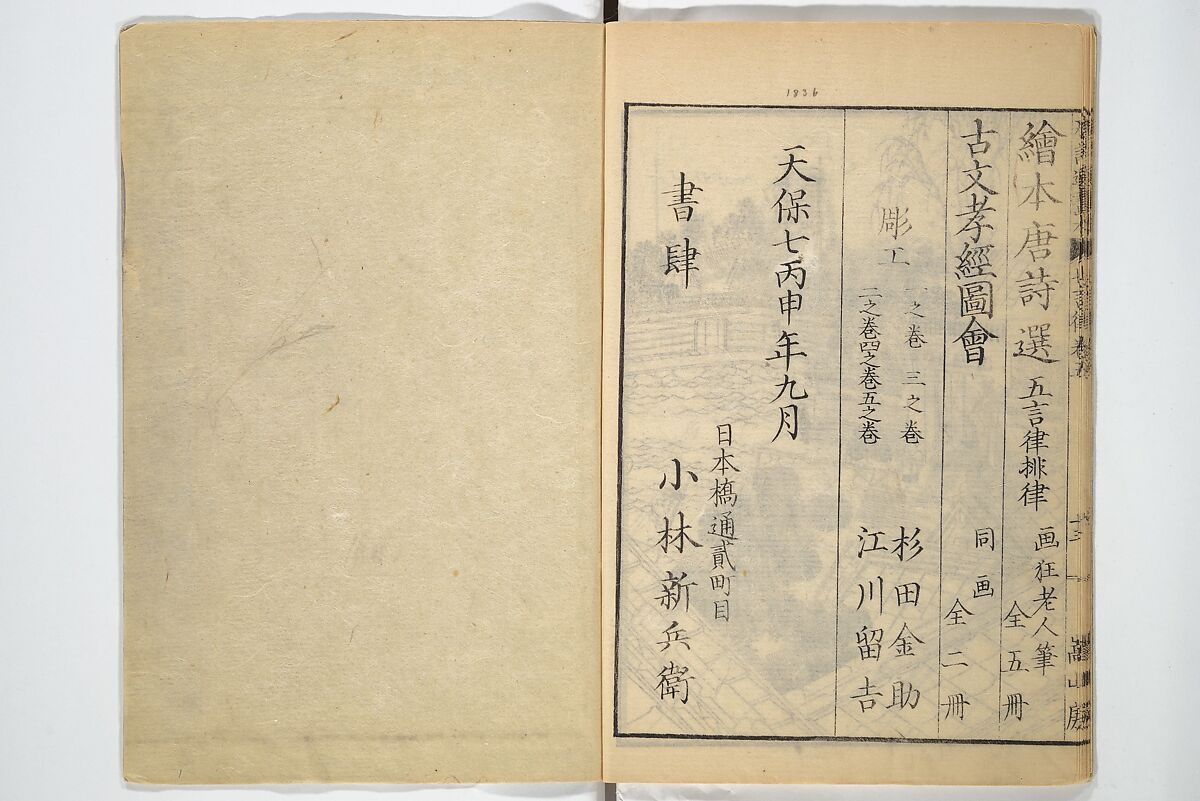 1836
繪本唐詩選 五言律排律 画狂老人筆 全五冊
古文孝經圖會 同画 全二冊
彫工 一之巻 三之巻 杉田金助
二之巻四之巻五之巻 江川留吉
天保七丙申年九月
日本橋通貳町目
書肆 小林新兵衛